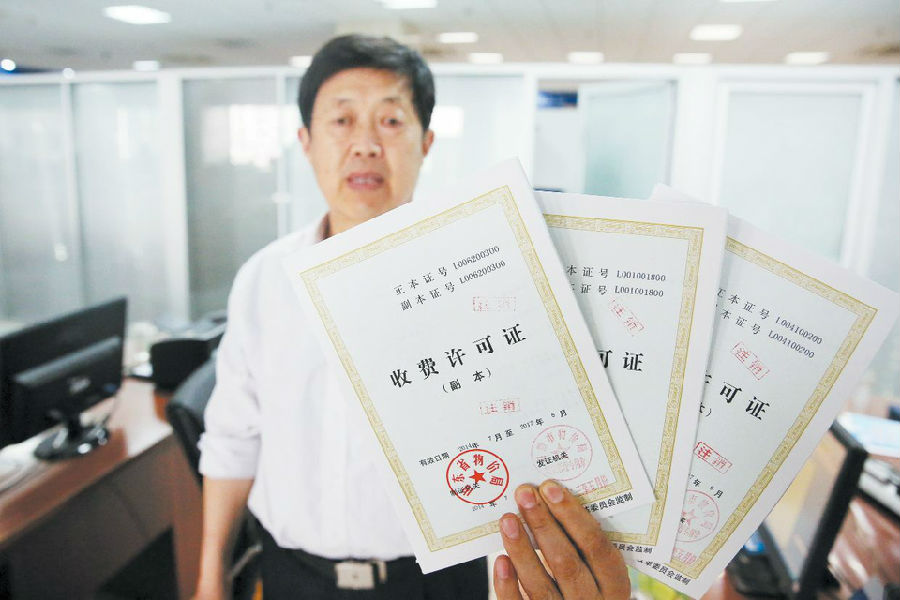 正本证号 L006200300
副本证号 L006200300
收费许可证
(副 本)
注销
有效日期 2014年 7月 至 2017年 6月
发证机关
东省物价局
2014年 7
委员会监制
本证号 L001001800
证号 L001001800
注销
可证
员会监制
正本证号 L004100200
本证号 L004100200
注销
许可证
本)
注销
委员会监制